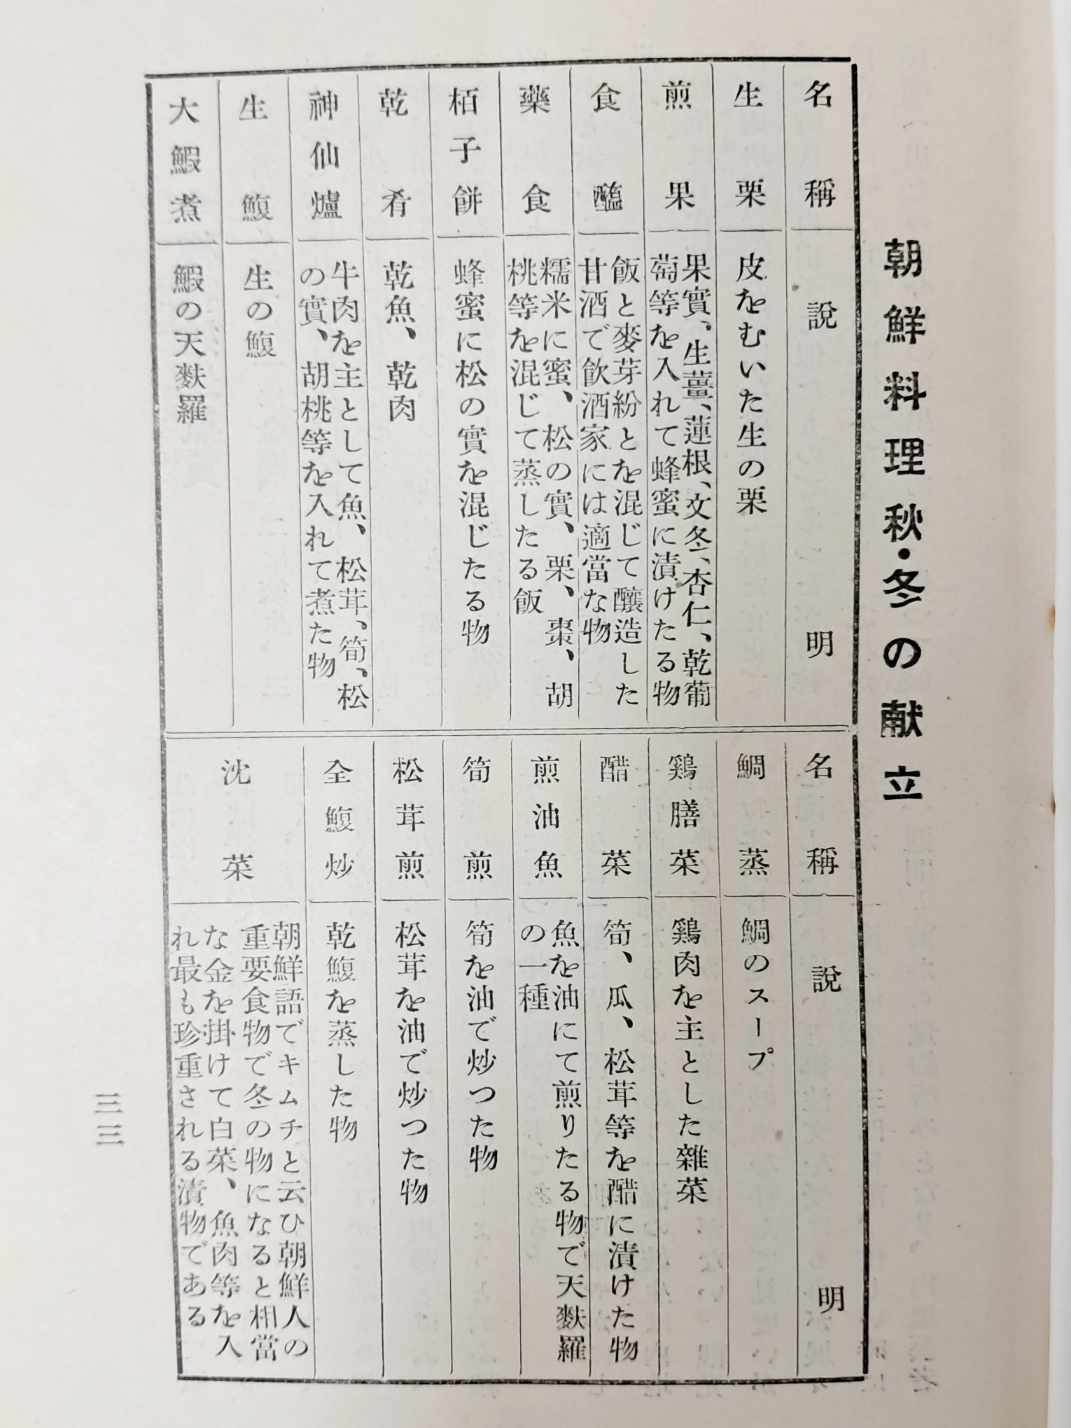 朝鮮料理秋・冬の献立
名稱
說明
生栗
皮をむいた生の栗
煎果
果實、生薑、蓮根、文冬、杏仁、乾葡
萄等を入れて蜂蜜に漬けたる物
食醯
飯と麥芽紛とを混じて釀造した
甘酒で飲酒家には適當な物
藥食
糯米に蜜、松の實、栗、棗、胡
桃等を混じて蒸したる飯
栢子餅
蜂蜜に松の實を混じたる物
乾肴
乾魚、乾肉
神仙爐
牛肉を主として魚、松茸、筍、松
の實、胡桃等を入れて煮た物
生鰒
生の鰒
大鰕煮
鰕の天麩羅
名稱
說明
鯛蒸
鯛のスープ
鷄膳菜
鷄肉を主とした雜菜
醋菜
筍、瓜、松茸等を醋に漬けた物
煎油魚
魚を油にて煎りたる物で天麩羅
の一種
筍煎
筍を油で炒つた物
松茸煎
松茸を油で炒つた物
全鰒炒
乾鰒を蒸した物
沈菜
朝鮮語でキムチと云ひ朝鮮人の
重要食物で冬の物になると相當
な金を掛けて白菜、魚肉等を入
れ最も珍重される漬物である
三三